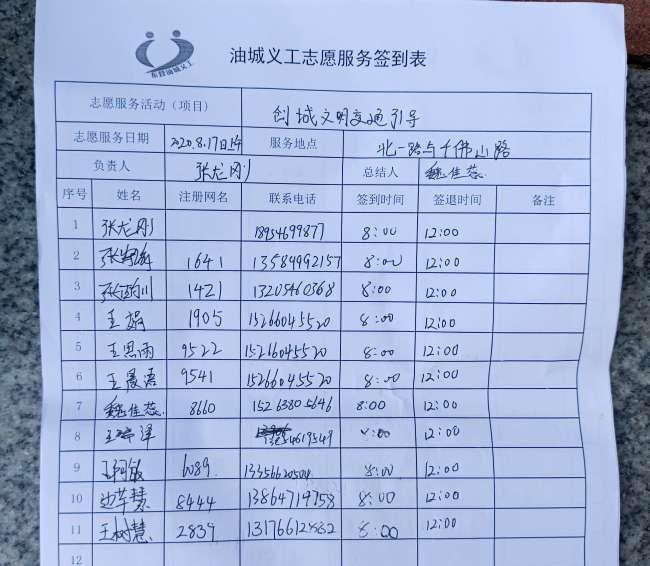 东营油城义工
油城义工志愿服务签到表
志愿服务活动（项目） 创城文明交通引导
志愿服务日期 2020.8.17日上午 服务地点 北一路与千佛山路
负责人 张龙刚 总结人 魏佳蕊
序号 姓名 注册网名 联系电话 签到时间 签退时间 备注
1 张龙刚 18954699877 8:00 12:00
2 1641 13584992157 8:00 12:00
3 1421 13205460368 8:00 12:00
4 王娟 1905 15266045520 8:00 12:00
5 王思雨 9522 15266045520 8:00 12:00
6 王晨语 9541 15266045520 8:00 12:00
7 魏佳蕊 8660 15263805646 8:00 12:00
8 8:00 12:00
9 6089 13356620504 8:00 12:00
10 边苹慧 8444 13864719758 8:00 12:00
11 王树慧 2839 8:00 12:00
12